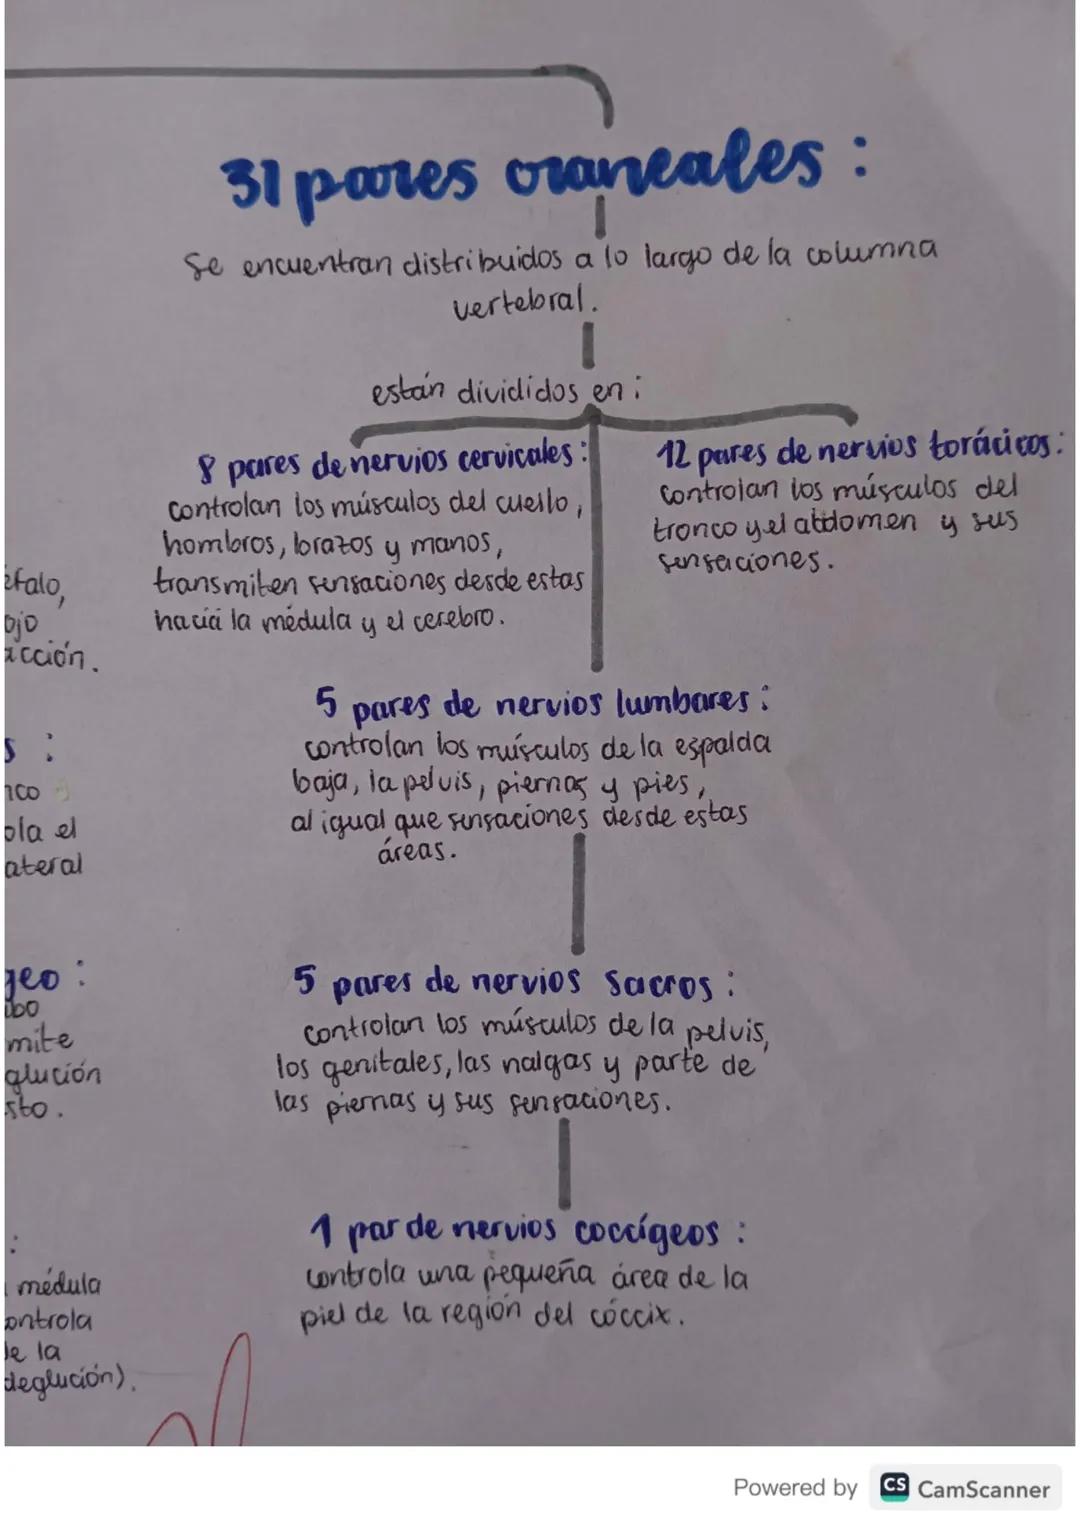 31 pares craneales :
Se encuentran distribuidos a lo largo de la columna
vertebral.
están divididos en :
8 pares de nervios cervicales :
controlan los músculos del cuello,
hombros, brazos y manos,
transmiten sensaciones desde estas
hacia la médula y el cerebro.
12 pares de nervios torácicos :
controlan los músculos del
tronco y el abdomen y sus
sensaciones.
5 pares de nervios lumbares :
controlan los músculos de la espalda
baja, la pelvis, piernas y pies,
al igual que sensaciones desde estas
áreas.
5 pares de nervios sacros :
controlan los músculos de la pelvis,
los genitales, las nalgas y parte de
las piernas y sus sensaciones.
1 par de nervios coccígeos :
controla una pequeña área de la
piel de la región del cóccix.
éfalo,
ojo
acción.
s :
nco
ola el
ateral
geo :
mite
glución
sto.
:
médula
ontrola
de la
deglución).
Powered by CS CamScanner